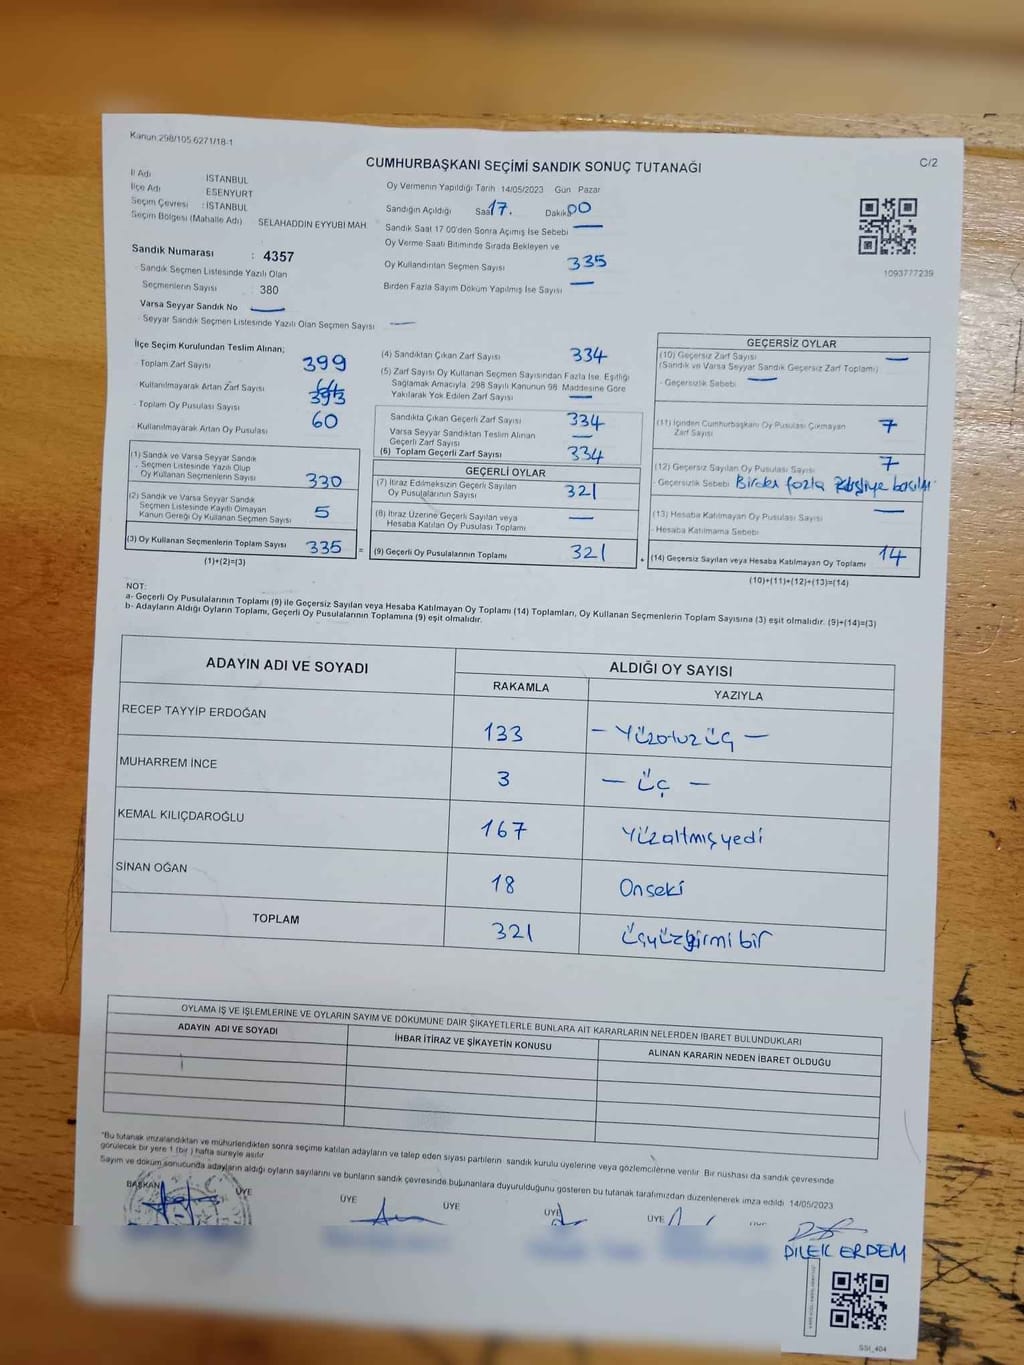 Kanun 298/105 6271/18-1
C/2
CUMHURBAŞKANI SEÇİMİ SANDIK SONUÇ TUTANAĞI
İl Adı İSTANBUL
İlçe Adı ESENYURT
Seçim Çevresi : İSTANBUL
Seçim Bölgesi (Mahalle Adı) SELAHADDIN EYYUBI MAH
Sandık Numarası : 4357
Sandık Seçmen Listesinde Yazılı Olan
Seçmenlerin Sayısı : 380
Varsa Seyyar Sandık No —
Seyyar Sandık Seçmen Listesinde Yazılı Olan Seçmen Sayısı —
Oy Vermenin Yapıldığı Tarih 14/05/2023 Gün Pazar
Sandığın Açıldığı Saat 17. Dakika 00
Sandık Saat 17 00'den Sonra Açımış İse Sebebi —
Oy Verme Saati Bitiminde Sırada Bekleyen ve
Oy Kullandırılan Seçmen Sayısı 335
Birden Fazla Sayım Döküm Yapılmış İse Sayısı —
1093777239
İlçe Seçim Kurulundan Teslim Alınan;
Toplam Zarf Sayısı 399
Kullanılmayarak Artan Zarf Sayısı 64
Toplam Oy Pusulası Sayısı 393
Kullanılmayarak Artan Oy Pusulası 60
(1) Sandık ve Varsa Seyyar Sandık
Seçmen Listesinde Yazılı Olup
Oy Kullanan Seçmenlerin Sayısı 330
(2) Sandık ve Varsa Seyyar Sandık
Seçmen Listesinde Kayıtlı Olmayan
Kanun Gereği Oy Kullanan Seçmen Sayısı 5
(3) Oy Kullanan Seçmenlerin Toplam Sayısı 335
(1)+(2)=(3)
(4) Sandıktan Çıkan Zarf Sayısı 334
(5) Zarf Sayısı Oy Kullanan Seçmen Sayısından Fazla İse, Eşitliği
Sağlamak Amacıyla, 298 Sayılı Kanunun 98. Maddesine Göre
Yakılarak Yok Edilen Zarf Sayısı —
Sandıkta Çıkan Geçerli Zarf Sayısı 334
Varsa Seyyar Sandıktan Teslim Alınan
Geçerli Zarf Sayısı —
(6) Toplam Geçerli Zarf Sayısı 334
GEÇERLİ OYLAR
(7) İtiraz Edilmeksizin Geçerli Sayılan
Oy Pusulalarının Sayısı 321
(8) İtiraz Üzerine Geçerli Sayılan veya
Hesaba Katılan Oy Pusulası Toplamı —
= (9) Geçerli Oy Pusulalarının Toplamı 321
GEÇERSİZ OYLAR
(10) Geçersiz Zarf Sayısı —
(Sandık ve Varsa Seyyar Sandık Geçersiz Zarf Toplamı)
Geçersizlik Sebebi —
(11) İçinden Cumhurbaşkanı Oy Pusulası Çıkmayan
Zarf Sayısı 7
(12) Geçersiz Sayılan Oy Pusulası Sayısı 7
Geçersizlik Sebebi Birden fazla kişiye basılması
(13) Hesaba Katılmayan Oy Pusulası Sayısı —
Hesaba Katılmama Sebebi
+ (14) Geçersiz Sayılan veya Hesaba Katılmayan Oy Toplamı 14
(10)+(11)+(12)+(13)=(14)
NOT:
a- Geçerli Oy Pusulalarının Toplamı (9) ile Geçersiz Sayılan veya Hesaba Katılmayan Oy Toplamı (14) Toplamları, Oy Kullanan Seçmenlerin Toplam Sayısına (3) eşit olmalıdır. (9)+(14)=(3)
b- Adayların Aldığı Oyların Toplamı, Geçerli Oy Pusulalarının Toplamına (9) eşit olmalıdır.
ADAYIN ADI VE SOYADI ALDIĞI OY SAYISI
RAKAMLA YAZIYLA
RECEP TAYYİP ERDOĞAN 133 — Yüzotuz üç —
MUHARREM İNCE 3 — üç —
KEMAL KILIÇDAROĞLU 167 Yüzaltmışyedi
SİNAN OĞAN 18 Onseki
TOPLAM 321 üçyüzyirmi bir
OYLAMA İŞ VE İŞLEMLERİNE VE OYLARIN SAYIM VE DÖKÜMÜNE DAİR ŞİKAYETLERLE BUNLARA AİT KARARLARIN NELERDEN İBARET BULUNDUKLARI
ADAYIN ADI VE SOYADI İHBAR İTİRAZ VE ŞİKAYETİN KONUSU ALINAN KARARIN NEDEN İBARET OLDUĞU
"Bu tutanak imzalandıktan ve mühürlendikten sonra seçime katılan adayların ve talep eden siyasi partilerin sandık kurulu üyelerine veya gözlemcilerine verilir Bir nüshası da sandık çevresinde
görülecek bir yere 1 (bir ) hafta süreyle asılır
Sayım ve döküm sonucunda adayların aldığı oyların sayılarını ve bunların sandık çevresinde bulunanlara duyurulduğunu gösteren bu tutanak tarafımızdan düzenlenerek imza edildi 14/05/2023
BAŞKAN ÜYE ÜYE ÜYE ÜYE ÜYE
DİLEK ERDEM
SSI_404